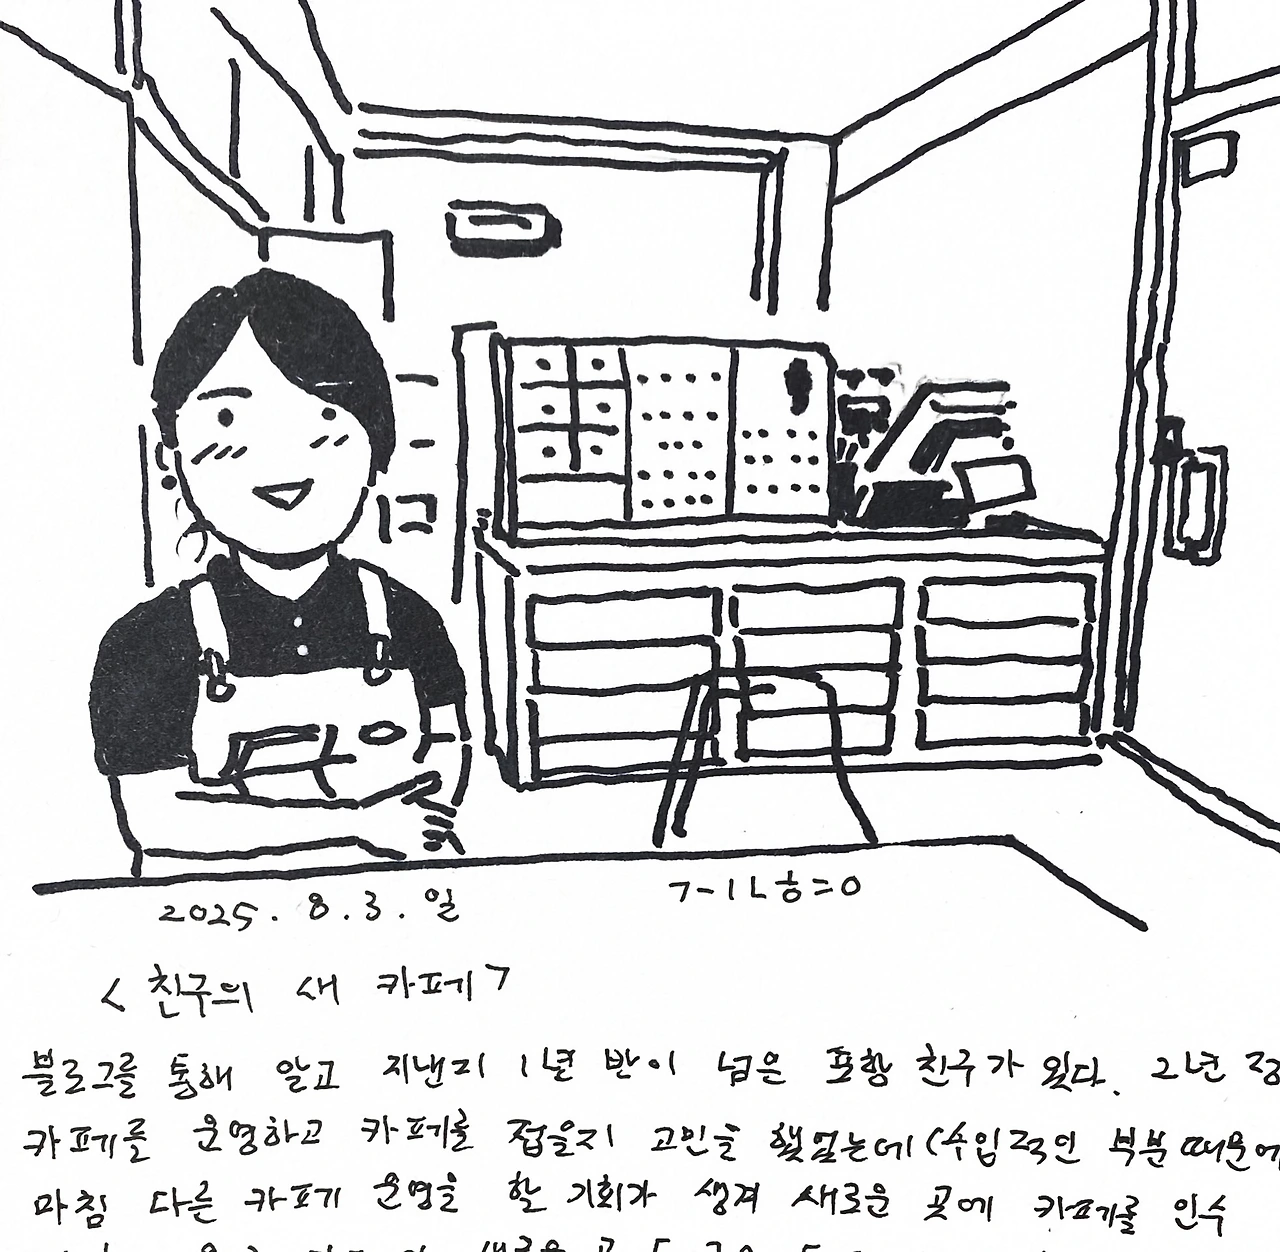 2025. 8. 3. 일
<친구의 새 카페>
블로그를 통해 알고 지낸지 1년 반이 넘은 포항 친구가 있다. 2년 정
카페를 운영하고 카페를 접을지 고민을 했었는데 (수입적인 부분때문에
마침 다른 카페 운영을 할 기회가 생겨 새로운 곳에 카페를 인수